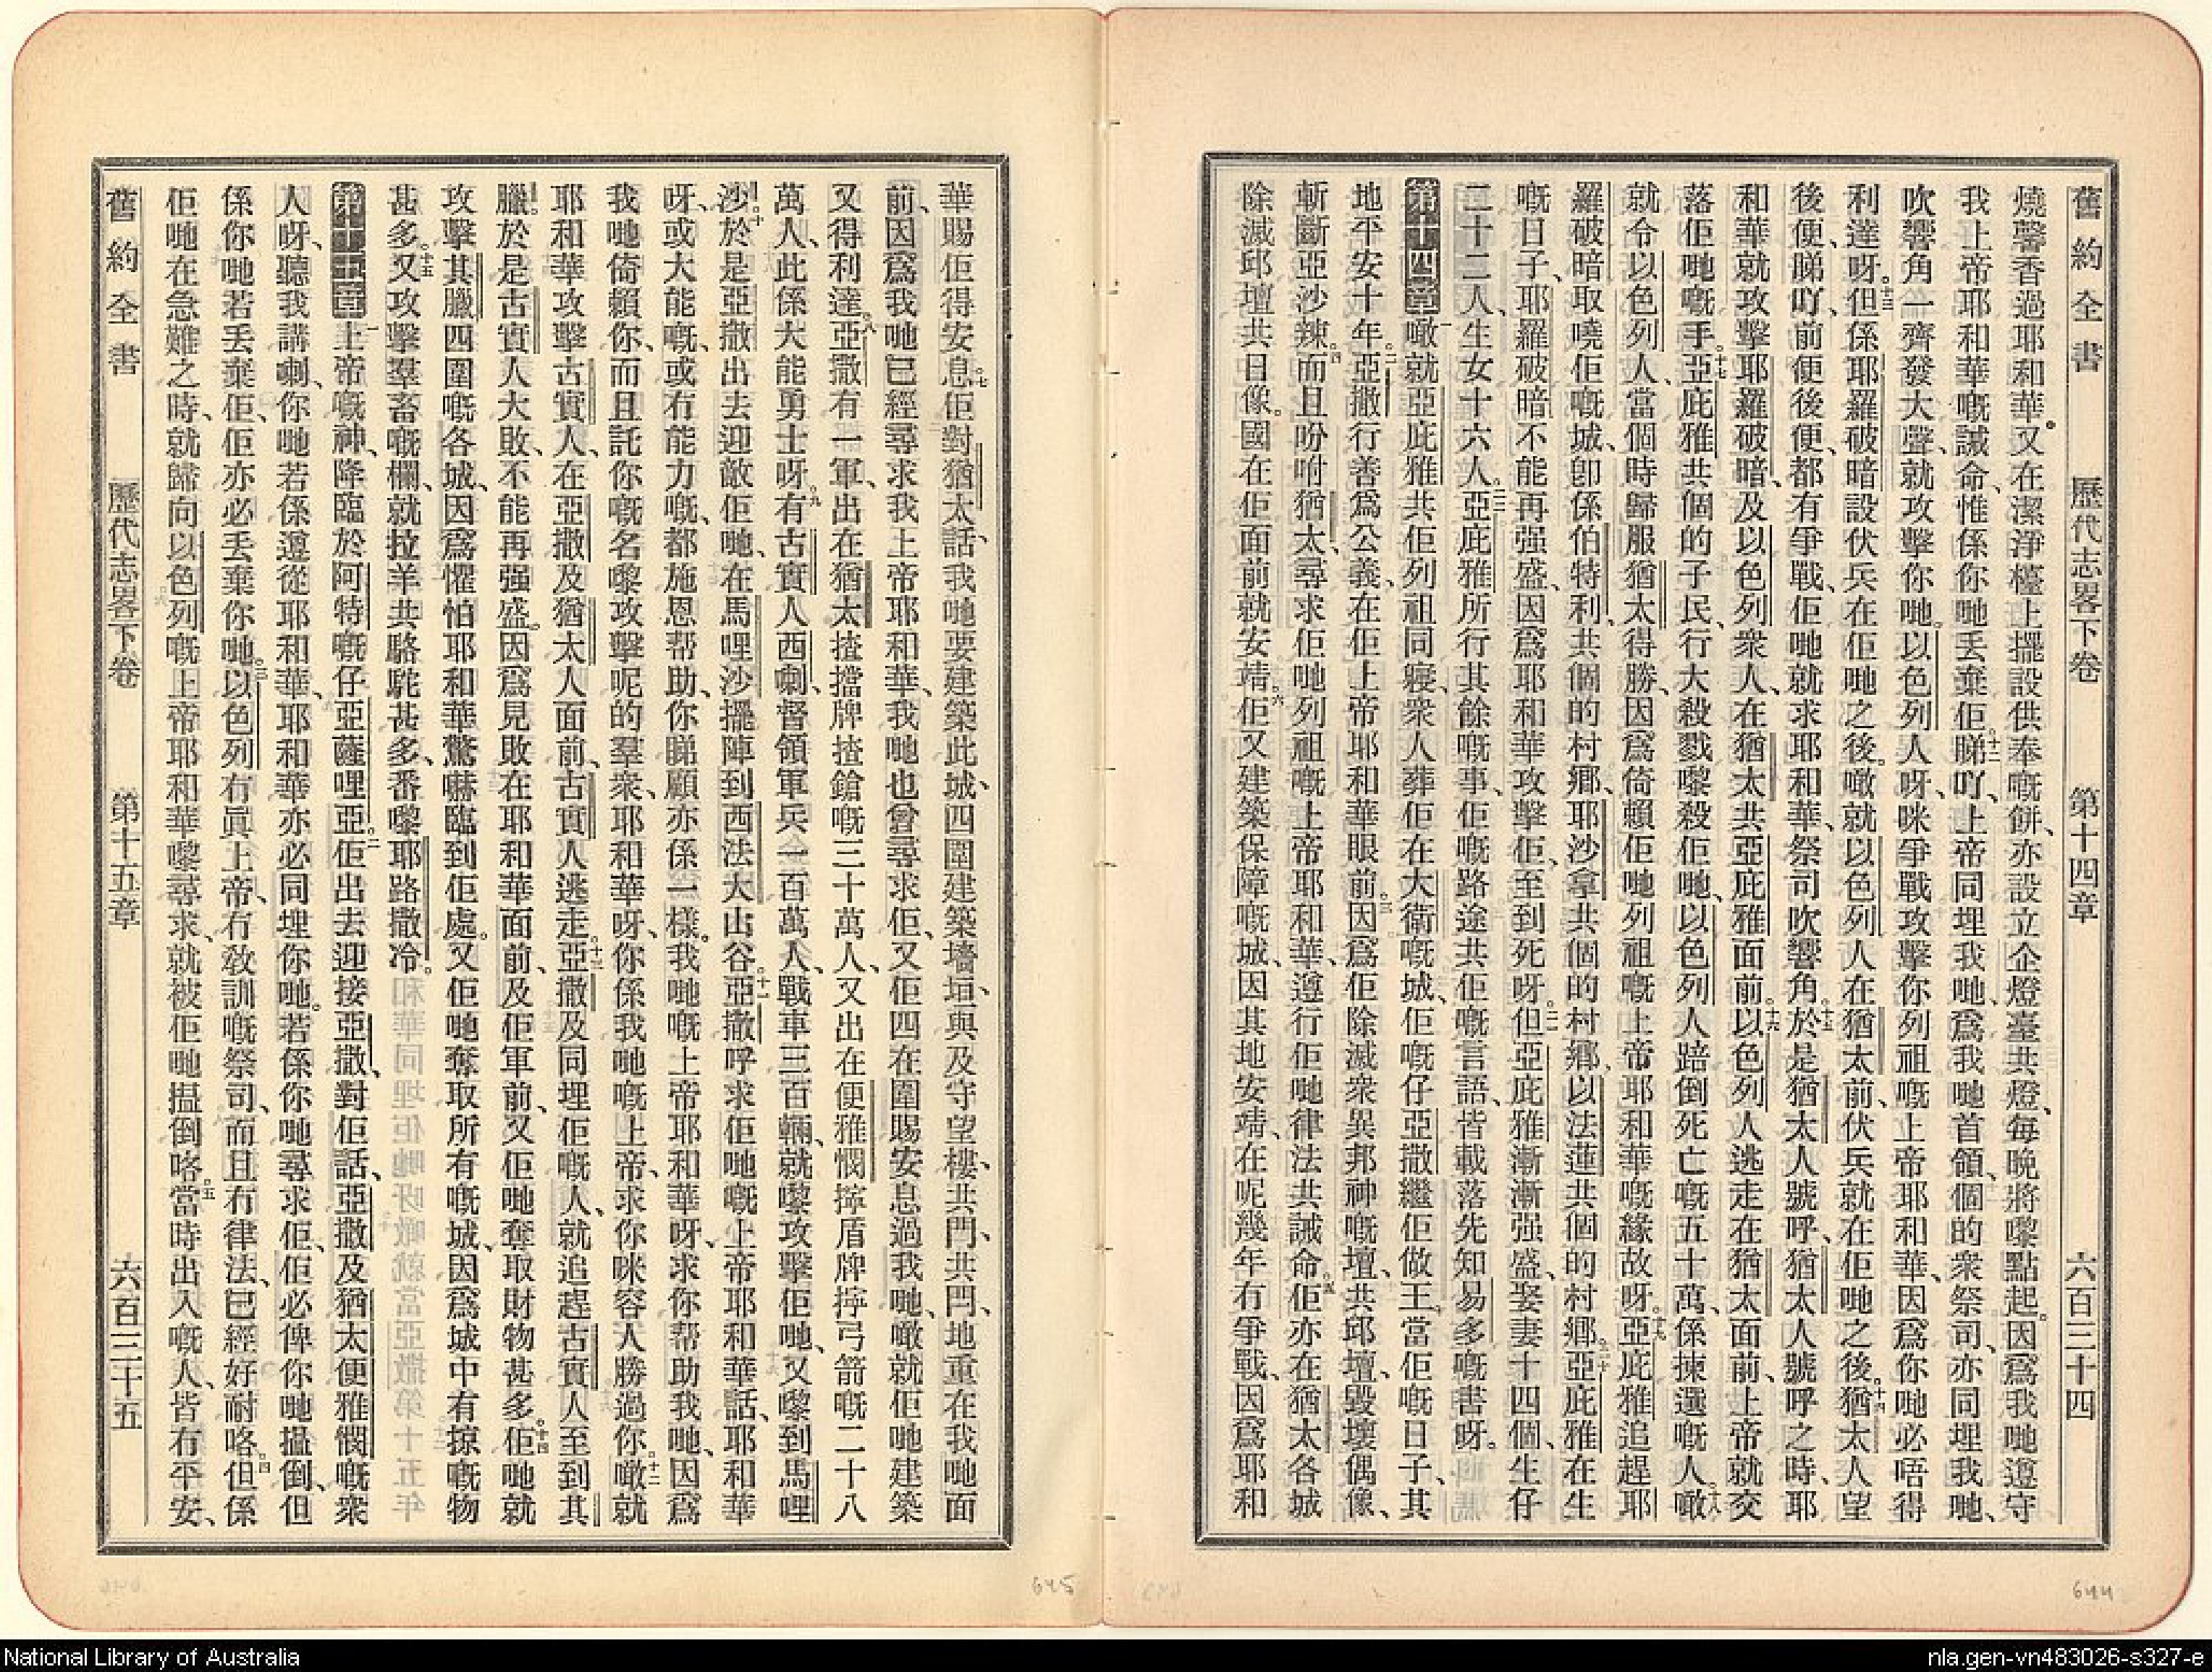 舊約全書 歷代志畧下卷 第十四章 六百三十四
燒馨香過耶和華。又在潔淨檯上擺設供奉嘅餅、亦設立企燈臺共燈、每晚將嚟點起。因爲我哋遵守
我上帝耶和華嘅誡命、惟係你哋丟棄佢。十二睇吖、上帝同埋我哋、爲我哋首領、個的衆祭司、亦同埋我哋、
吹響角一齊發大聲、就攻擊你哋。以色列人呀、咪爭戰攻擊你列祖嘅上帝耶和華、因爲你哋必唔得
利達呀。十三但係耶羅破暗設伏兵在佢哋之後。噉就以色列人在猶太前、伏兵就在佢哋之後。十四猶太人望
後便、睇吖、前便後便、都有爭戰、佢哋就求耶和華、祭司吹響角。十五於是猶太人號呼、猶太人號呼之時、耶
和華就攻擊耶羅破暗、及以色列衆人、在猶太共亞庇雅面前。十六以色列人逃走在猶太面前、上帝就交
落佢哋嘅手。十七亞庇雅共個的子民、行大殺戮嚟殺佢哋、以色列人踣倒死亡嘅五十萬、係揀選嘅人。十八噉
就令以色列人、當個時歸服猶太得勝、因爲倚賴佢哋列祖嘅上帝耶和華嘅緣故呀。十九亞庇雅追趕耶
羅破暗取曉佢嘅城、卽係伯特利、共個的村鄉、耶沙拿共個的村鄉、以法蓮共個的村鄉。二十亞庇雅在生
嘅日子、耶羅破暗不能再强盛、因爲耶和華攻擊佢、至到死呀。二一但亞庇雅漸漸强盛、娶妻十四個、生仔
二十二人、生女十六人。二二亞庇雅所行其餘嘅事、佢嘅路途共佢嘅言語、皆載落先知易多嘅書呀。
第十四章 一噉就亞庇雅共佢列祖同寢、衆人葬佢在大衞嘅城、佢嘅仔亞撒繼佢做王、當佢嘅日子、其
地平安十年。二亞撒行善爲公義、在佢上帝耶和華眼前。三因爲佢除滅衆異邦神嘅壇、共邱壇、毀壞偶像、
斬斷亞沙辣。四而且吩咐猶太、尋求佢哋列祖嘅上帝耶和華、遵行佢哋律法共誡命。五佢亦在猶太各城
除滅邱壇共日像。國在佢面前就安靖。六佢又建築保障嘅城、因其地安靖、在呢幾年冇爭戰、因爲耶和
華賜佢得安息。七佢對猶太話、我哋要建築此城、四圍建築墻垣、與及守望樓、共門、共閂、地重在我哋面
前、因爲我哋已經尋求我上帝耶和華、我哋也曾尋求佢、又佢四在圍賜安息過我哋、噉就佢哋建築
又得利達。八亞撒有一軍、出在猶太揸擋牌揸鎗嘅三十萬人、又出在便雅憫擰盾牌擰弓箭嘅二十八
萬人、此係大能勇士呀。九有古實人西喇、督領軍兵一百萬人、戰車三百輛、就嚟攻擊佢哋、又嚟到馬哩
沙。十於是亞撒出去迎敵佢哋、在馬哩沙擺陣到西法大山谷。十一亞撒呼求佢哋嘅上帝耶和華話、耶和華
呀、或大能嘅、或冇能力嘅、都施恩帮助、你睇顧亦係一樣。我哋嘅上帝耶和華呀、求你帮助我哋、因爲
我哋倚賴你、而且託你嘅名嚟攻擊呢的羣衆、耶和華呀、你係我哋嘅上帝、求你咪容人勝過你。十二噉就
耶和華攻擊古實人、在亞撒及猶太人面前、古實人逃走。十三亞撒及同埋佢嘅人、就追趕古實人至到其
臘。於是古實人大敗、不能再强盛。因爲見敗在耶和華面前、及佢軍前、又佢哋奪取財物甚多。十四佢哋就
攻擊其臘四圍嘅各城、因爲懼怕耶和華驚嚇臨到佢處。又佢哋奪取所有嘅城、因爲城中有掠嘅物
甚多。十五又攻擊羣畜嘅欄、就拉羊共駱駝甚多、番嚟耶路撒冷。
第十五章 一上帝嘅神、降臨於阿特嘅仔亞薩哩亞。二佢出去迎接亞撒、對佢話、亞撒及猶太便雅憫嘅衆
人呀、聽我講喇、你哋若係遵從耶和華、耶和華亦必同埋你哋。若係你哋尋求佢、佢必俾你哋搵倒、但
係你哋若丟棄佢、佢亦必丟棄你哋。三以色列冇眞上帝、冇敎訓嘅祭司、而且冇律法、已經好耐咯。四但係
佢哋在急難之時、就歸向以色列嘅上帝耶和華嚟尋求、就被佢哋搵倒咯。五當時出入嘅人、皆冇平安、
舊約全書 歷代志畧下卷 第十五章 六百三十五
645
644
National Library of Australia
nla.gen-vn483026-s327-e